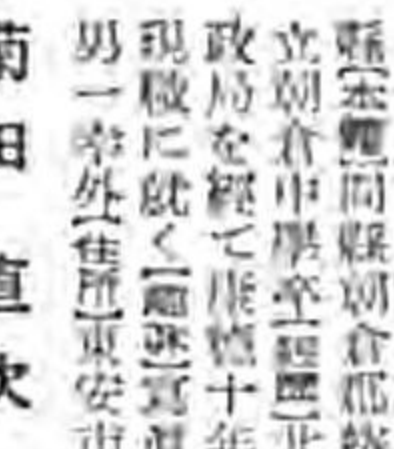 縣【本籍】同縣朝倉郡
立朝倉中學卒【經歷】北
政局を經て康德十年
現職に就く【趣味】寫眞
男一幸外【住所】東安市
菊田直次